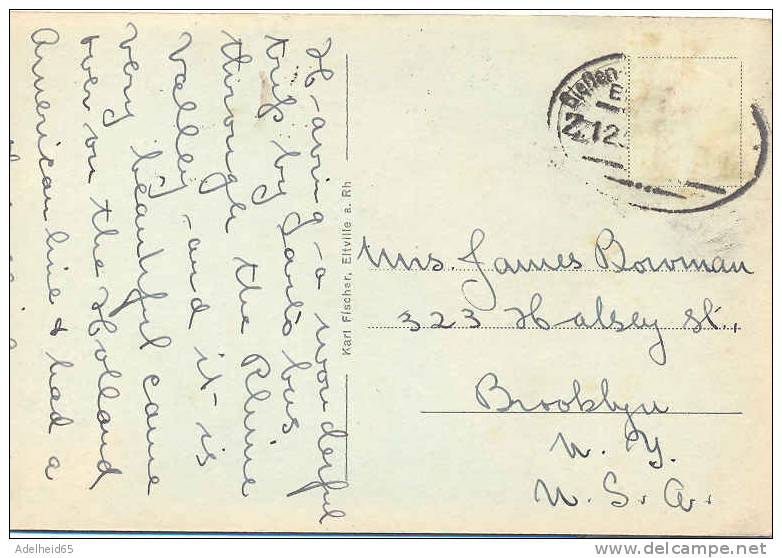 Having a wonderful
trip by auto bus
through the Rhine
Valley - and it is
very beautiful came
over on the Holland
American line & had a
Karl Fischer, Eltville a. Rh
Gießen
Z.12
Mrs. James Bowman
323 Halsey St.,
Brooklyn
N. Y.
U. S. A.
Adelheid65
delcampe.net